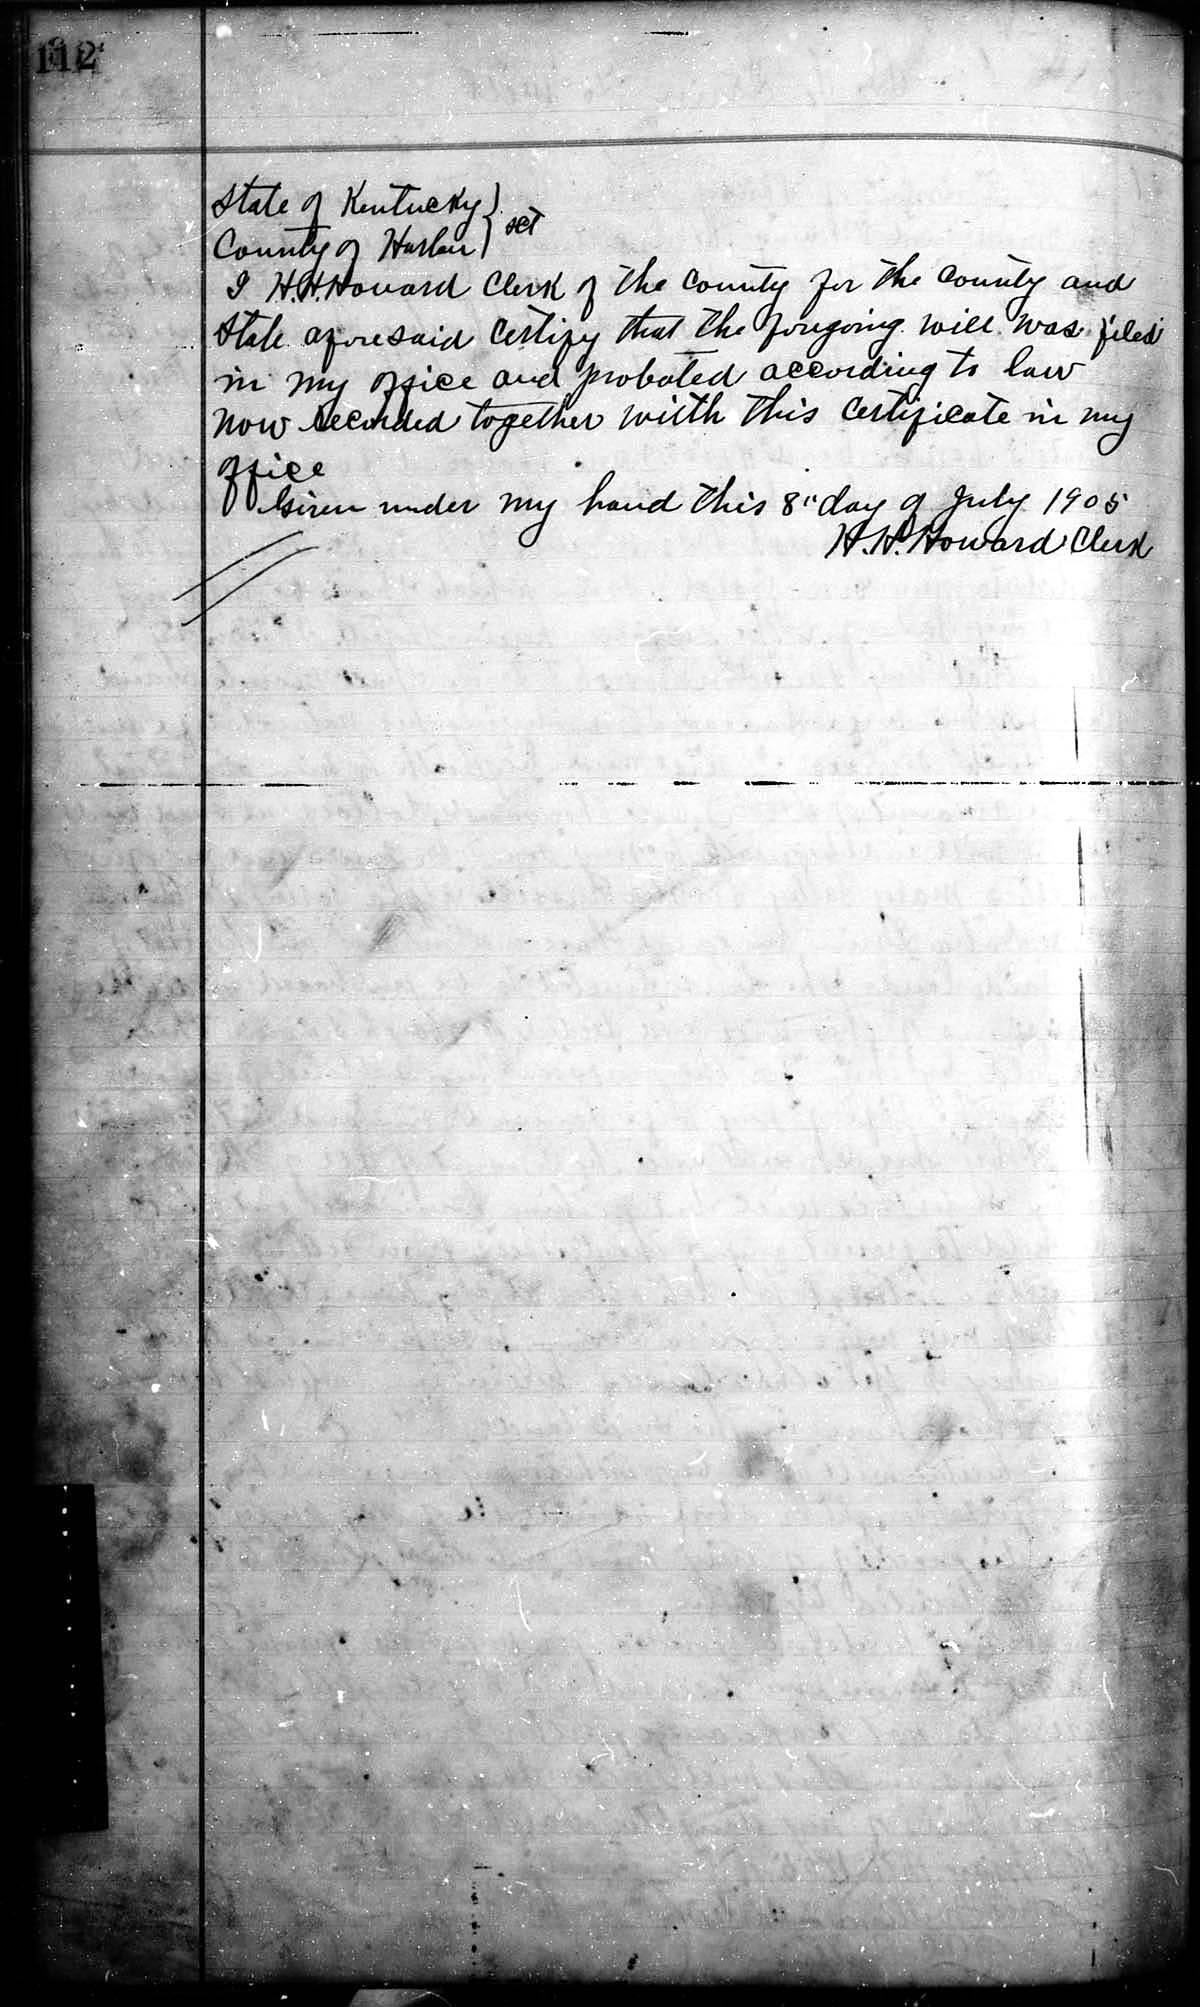 112
State of Kentucky }
County of Harlan } sct
I H.H. Howard Clerk of the County for the County and
State aforesaid Certify that the forgoing will was filed
in my office and probated according to law
now recorded together with this certificate in my
office
Given under my hand this 8" day of July 1905
H.H. Howard Clerk